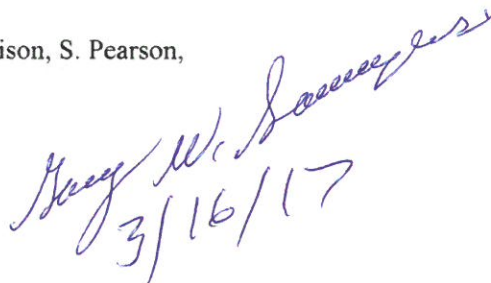 ison, S. Pearson,
Gary W. Saunders
3/16/17